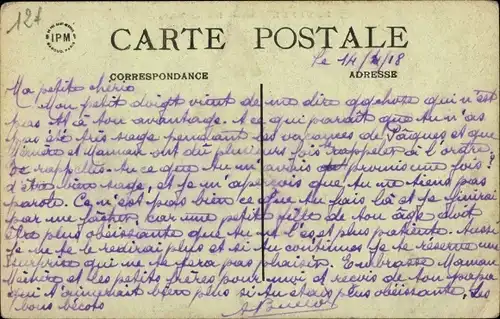 12f
IPM
CARTE POSTALE
CORRESPONDANCE
ADRESSE
Le 14/4/18
Ma petite chérie
Mon petit doigt vient de me dire qqchose qui n'est
pas à ton avantage. A ce qui parait que tu n'as
pas été très sage pendant les vacances de Pâques et que
Mémère et Maman ont dû plusieurs fois rappeler à l'ordre.
Te rappelles-tu ce que tu m'avais promis une fois?
d'être bien sage, et je m'aperçois que tu ne tiens pas
parole. Ce n'est pas bien ce que tu fais là et je finirai
par me fâcher, car une petite fille de ton âge doit
être plus obéissante que tu ne l'es et plus patiente. Aussi
je ne te le redirai plus et si tu continues je te réserve une
surprise qui ne te fera pas plaisir. Embrasse Maman
Mémère et les petits frères pour moi et reçois de ton papa
qui t'aimerait bien plus si tu étais plus obéissante, les
bons bécots